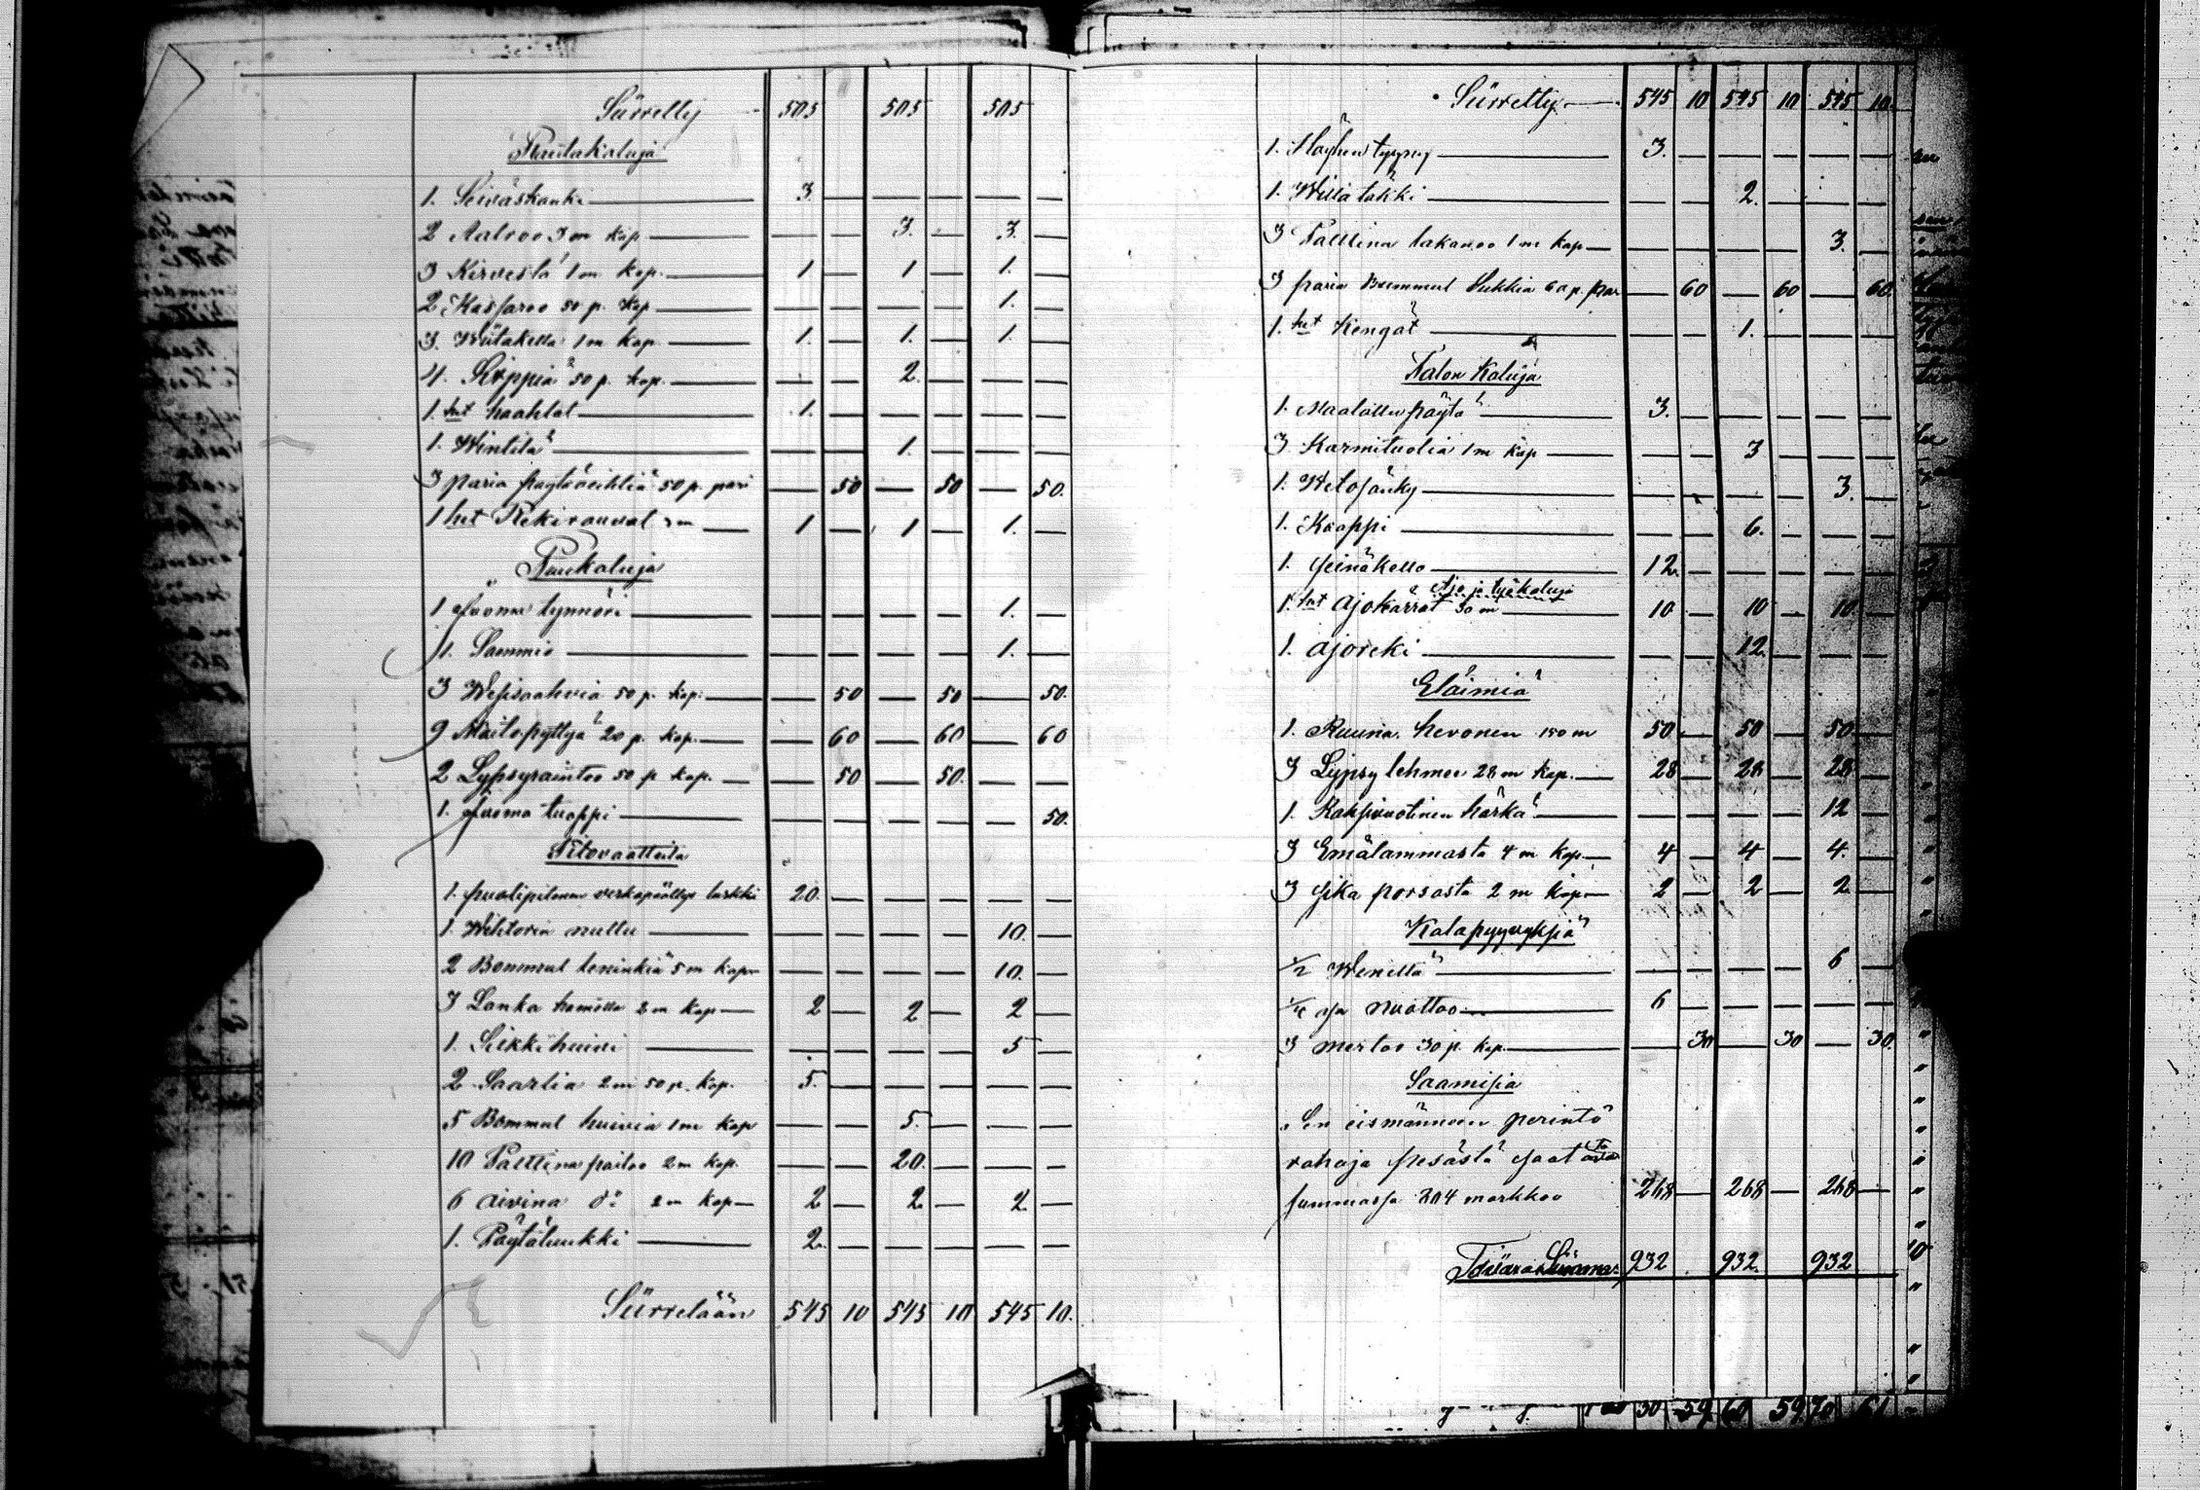 Siirretty 505 505 505
Rautakaluja
1. Seiväskanki 3. — — — — —
2 Aatroo 3 m kap — — 3. — 3. —
3 Kirvestä 1 m. kap. 1 — 1 — 1. —
2 Kassaroo 50 p. kap — — — — 1. —
3. Wiitaketta 1 m kap. 1. — 1. — 1. —
4. Sirppiä 50 p. kap. — — 2. — — —
1. hut haahlat 1. — — — — —
1. Wintilä — — 1. — — —
3 paria pöytäveihtiä 50 p. pari — 50 — 50 — 50.
1 hut Rekirauvat 3 m 1 — 1 — 1. —
Puukaluja
1 Juoma tynnöri — — — — 1. —
1. Sammio — — — — 1. —
3 Wesisaahvia 50 p. kap. — 50 — 50 — 50.
9 Maitopyttyä 20 p. kap. — 60 — 60 — 60
2 Lypsyraintoo 50 p kap. — 50 — 50. — —
1. Juoma tuoppi — — — — — 50.
Pitovaatteita
1. puolipitonen verkapäällys turkki 20. — — — — —
1. Wihtorin nuttu — — — — 10. —
2 Bommul leninkiä 5 m kap — — — — 10. —
3 Lanka hametta 2 m kap 2 — 2 — 2 —
1. Silkkihuivi — — — — 5 —
2 Saarlia 2 m 50 p. kap. 5. — — — — —
5 Bommul huivia 1 m kap — — 5. — — —
10 Palttina paitoo 2 m kap. — — 20. — — —
6 aivina do 2 m kap 2 — 2 — 2 —
1. Pöytäluukki 2. — — — — —
Siirretään 545 10 545 10 545 10.
Siirretty 545 10 545 10 545 10.
1. Höyhen tyyny 3. — — — — —
1. Willa läkki — — 2. — — —
3 Palttina lakanoo 1 m kap — — — — 3. —
3 paria Bummul Sukkia 60 p. par — 60 — 60 — 60.
1. hut Kengät — — 1. — — —
Talon Kaluja
1. Maalattu pöytä 3. — — — — —
3 Karmituolia 1 m kap — — 3 — — —
1. Wetosänky — — — — 3. —
1. Kaappi — — 6. — — —
1. seinäkello 12. — — — — —
Ajo ja työkaluja
1. hut ajokärrät 30 m 10 — 10 — 10 —
1. ajoreki — — 12. — — —
Eläimiä
1. Ruuna hevonen 150 m 50 — 50 — 50 —
3 Lypsy lehmee 28 m kap. 28 — 28 — 28 —
1. Kaksivuotinen härkä — — — — 12 —
3 Emälammasta 4 m kap 4 — 4 — 4. —
3 sika porsasta 2 m kap 2 — 2 — 2 —
Kalapyyvyksiä
1/2 Wenettä — — — — 6 —
1/4 osa nuottoo 6 — — — — —
3 mertoo 30 p. kap. — 30 — 30 — 30.
Saamisia
Sen eismänneen perintö
rahoja pesästä saat
summassa 804 markkoo 268 — 268 — 268 —
Tavaran Summa. 932 932. 932